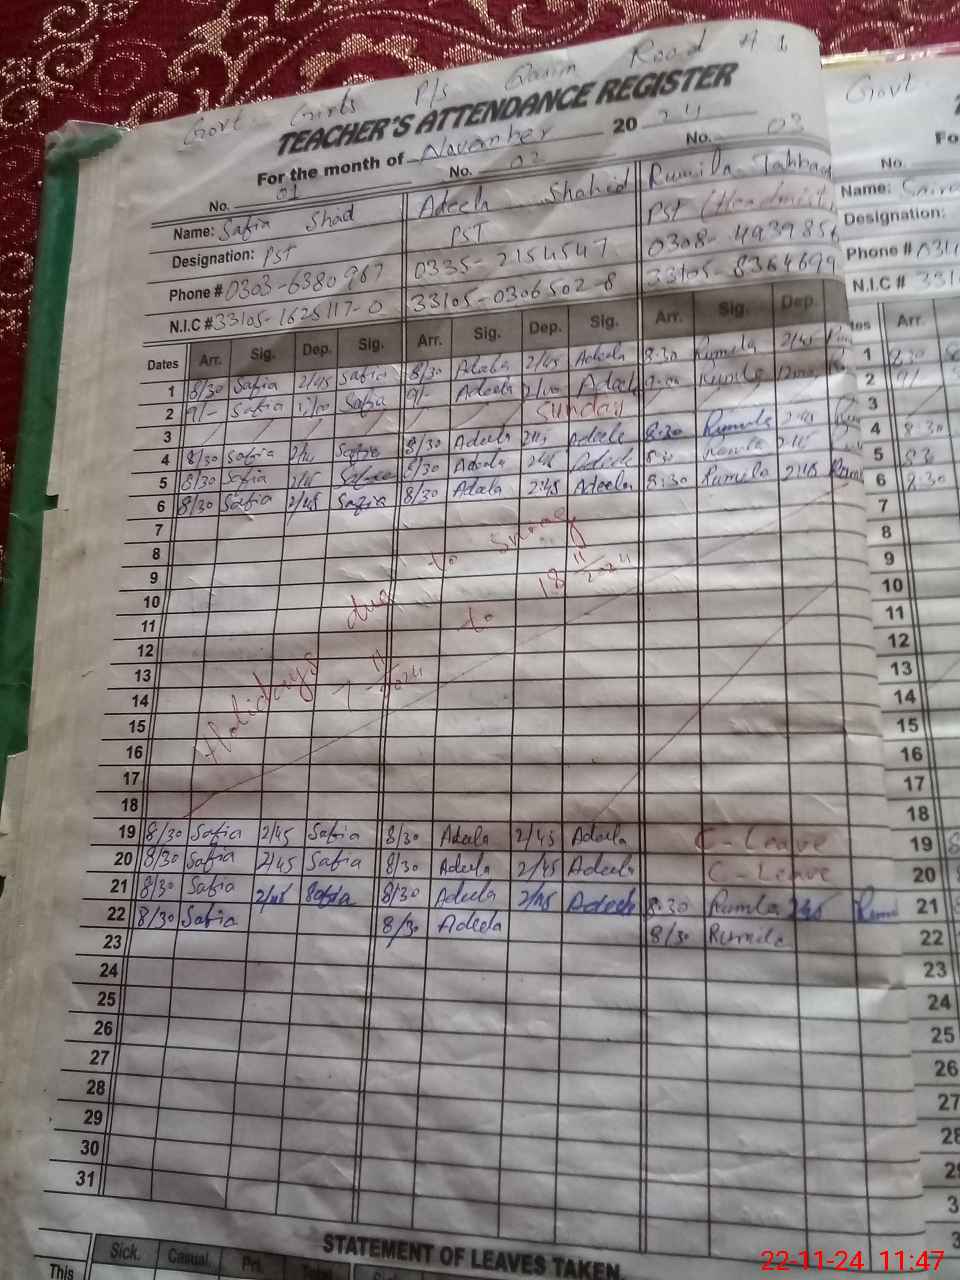 Govt Girls P/s Road # 1
TEACHER'S ATTENDANCE REGISTER
For the month of November 20 24
No. 01 No. 02 No. 03
Name: Safia Shad Adeela Shahid Rumila
Designation: PST PST PST (Headmist
Phone # 0303-6380967 0335-2154547 0308-4939856
N.I.C # 33105-1625117-0 33105-0306502-8 33105-8364699
Dates Arr. Sig. Dep. Sig. Arr. Sig. Dep. Sig. Arr. Sig. Dep.
1 8/30 Safia 2/45 Safia 8/30 Adeela 2/45 Adeela 8:30 Rumila 2/45
2 9/- Safia 12/00 Safia 9/- Adeela Adeela Rumila 12:00
3 Sunday
4 8/30 Safia Safia 8/30 Adeela Adeela 8:30 Rumila 2:45
5 8/30 Safia 2/45 8/30 Adeela 2:45 Adeela 8:30 Rumila 2:45
6 8/30 Safia 2/45 Safia 8/30 Adeela 2:45 Adeela 8:30 Rumila 2:45
7
8
9
10
11
12
13
14
15
16
17
18
Holidays due to Smog
7-11-2024 to 18-11-2024
19 8/30 Safia 2/45 Safia 8/30 Adeela 2/45 Adeela C-Leave
20 8/30 Safia 2/45 Safia 8/30 Adeela 2/45 Adeela C-Leave
21 8/30 Safia 2/45 Safia 8/30 Adeela 2/45 Adeela 8:30 Rumila 2/45
22 8/30 Safia 8/30 Adeela 8/30 Rumila
23
24
25
26
27
28
29
30
31
STATEMENT OF LEAVES TAKEN.
Sick. Casual.
This
Govt.
No.
Name:
Designation:
Phone #
N.I.C #
Arr.
1
2
3
4 8:30
5
6 8:30
7
8
9
10
11
12
13
14
15
16
17
18
19
20
21
22
23
24
25
26
27
28
22-11-24 11:47